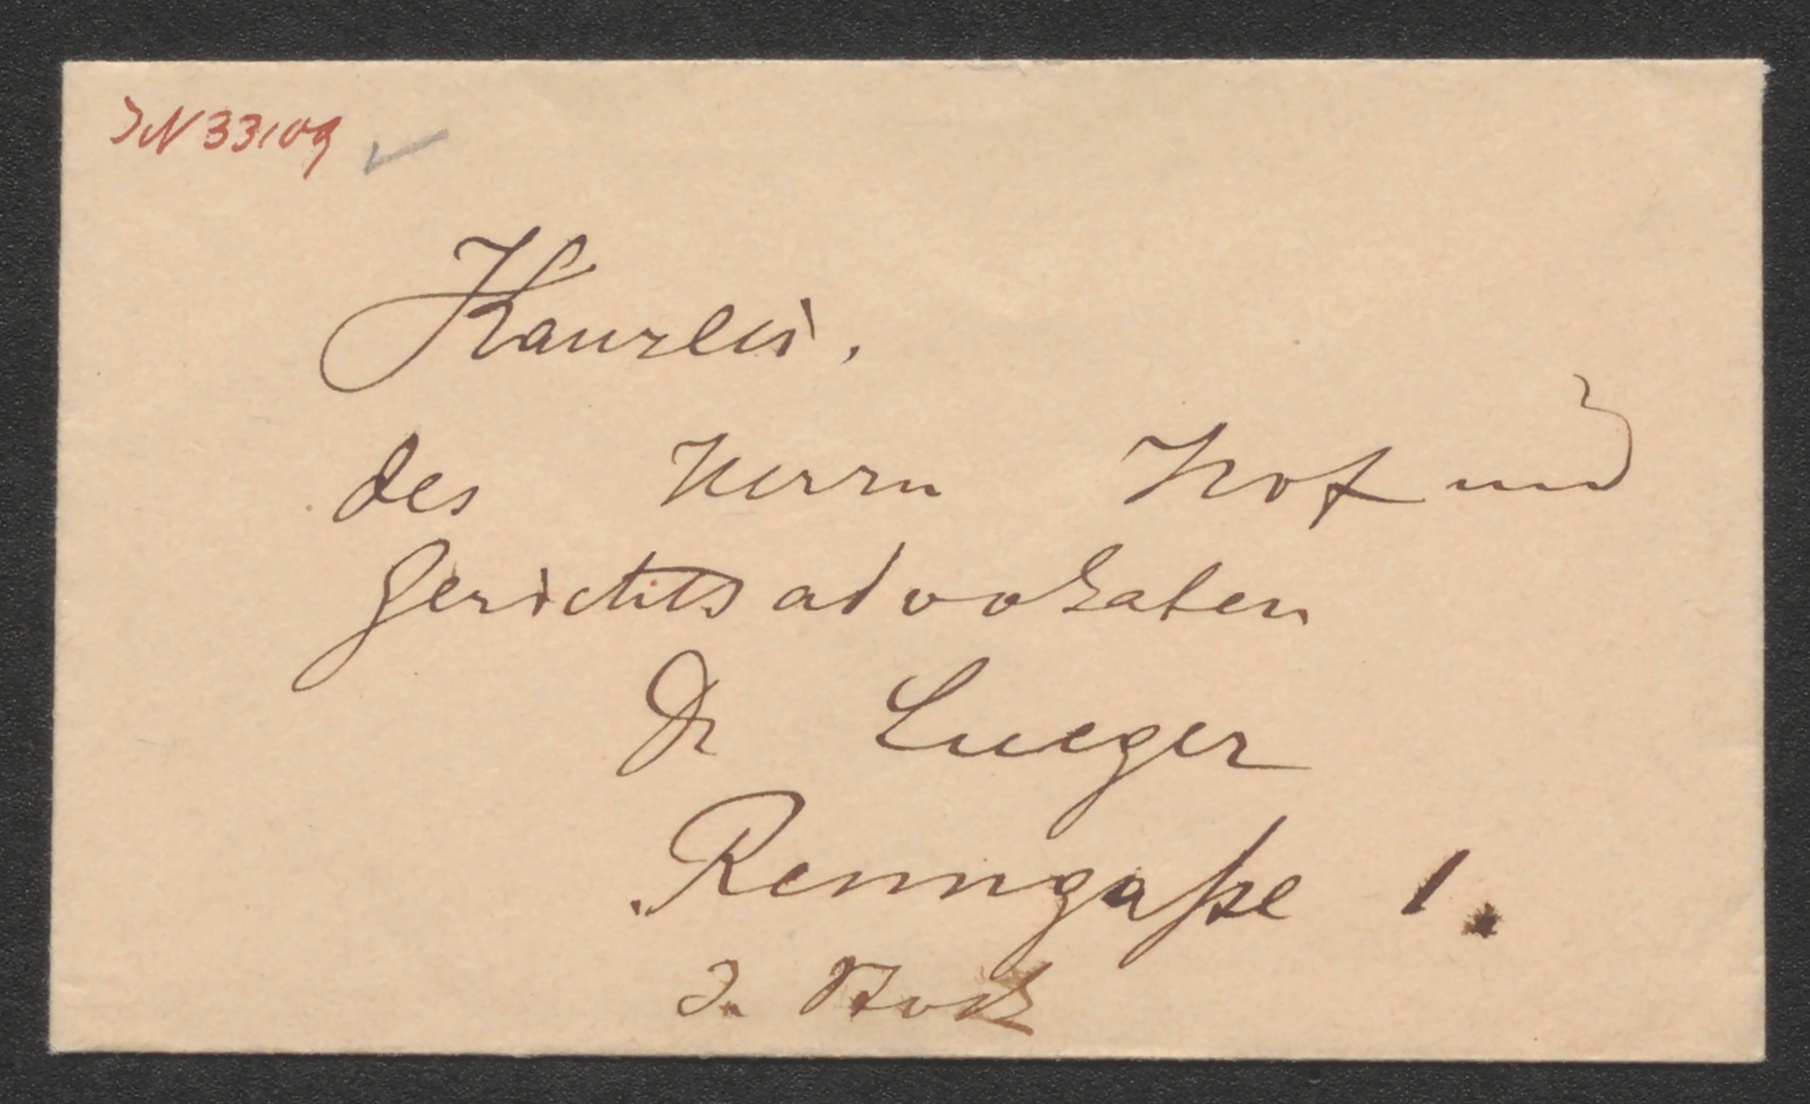 JN 33109 ✓
Kanzlei.
des Herrn Hof und
Gerichtsadvokaten
Dr Lueger
Renngaße 1.
3. Stock